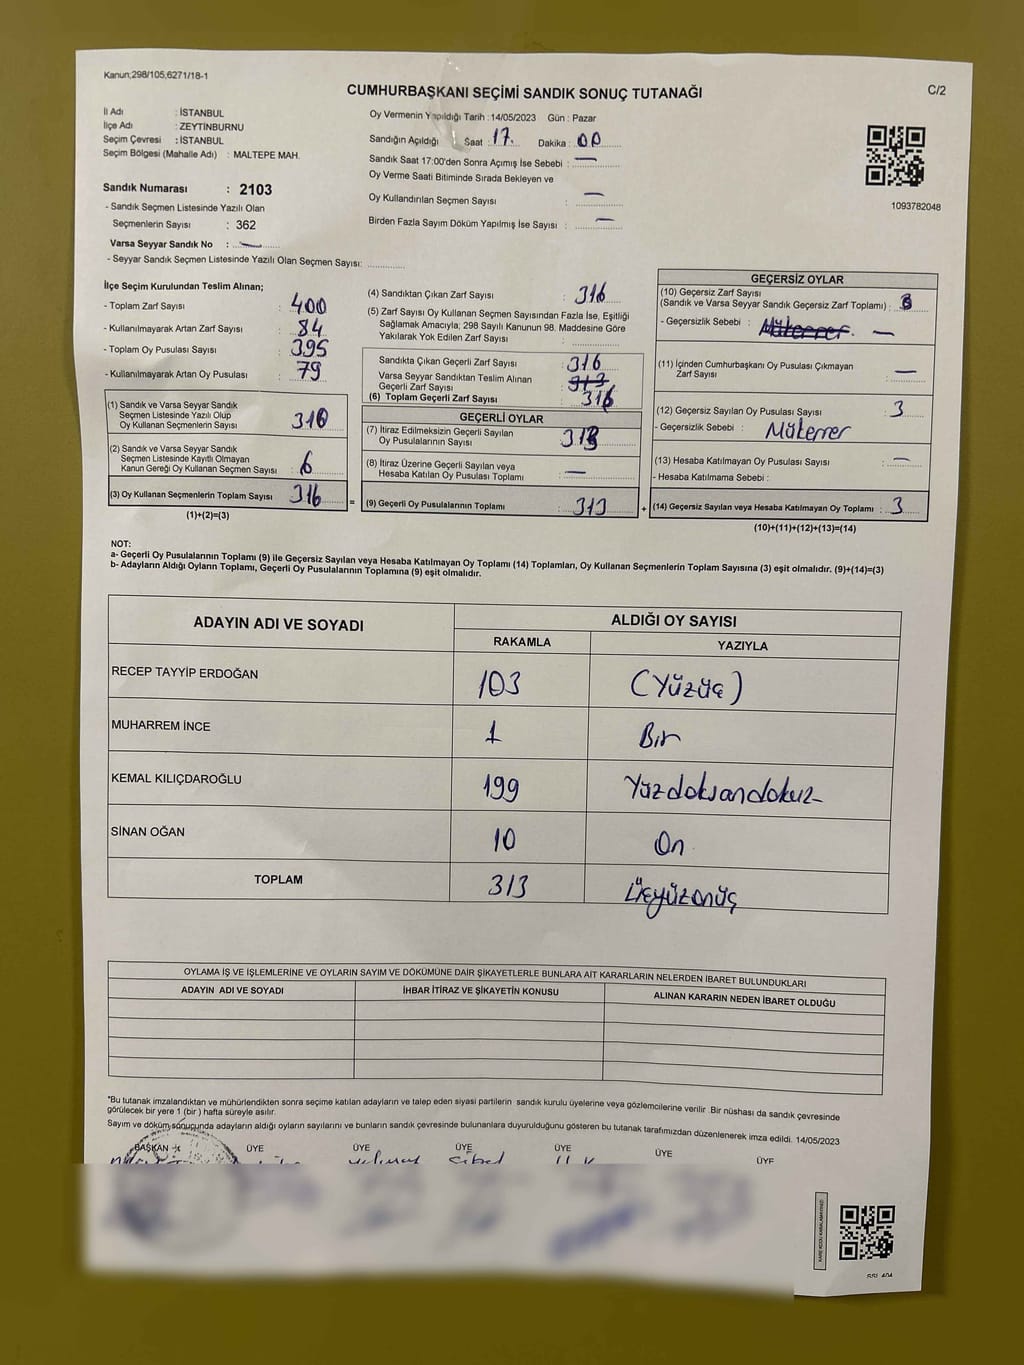 Kanun;298/105,6271/18-1
CUMHURBAŞKANI SEÇİMİ SANDIK SONUÇ TUTANAĞI
C/2
İl Adı : İSTANBUL
İlçe Adı : ZEYTİNBURNU
Seçim Çevresi : İSTANBUL
Seçim Bölgesi (Mahalle Adı) : MALTEPE MAH.
Sandık Numarası : 2103
- Sandık Seçmen Listesinde Yazılı Olan
Seçmenlerin Sayısı : 362
Varsa Seyyar Sandık No : —
- Seyyar Sandık Seçmen Listesinde Yazılı Olan Seçmen Sayısı:
Oy Vermenin Yapıldığı Tarih : 14/05/2023 Gün : Pazar
Sandığın Açıldığı Saat : 17. Dakika : 00
Sandık Saat 17:00'den Sonra Açımış İse Sebebi : —
Oy Verme Saati Bitiminde Sırada Bekleyen ve
Oy Kullandırılan Seçmen Sayısı : —
Birden Fazla Sayım Döküm Yapılmış İse Sayısı : —
1093782048
İlçe Seçim Kurulundan Teslim Alınan;
- Toplam Zarf Sayısı : 400
- Kullanılmayarak Artan Zarf Sayısı : 84
- Toplam Oy Pusulası Sayısı : 395
- Kullanılmayarak Artan Oy Pusulası : 79
(1) Sandık ve Varsa Seyyar Sandık
Seçmen Listesinde Yazılı Olup
Oy Kullanan Seçmenlerin Sayısı : 310
(2) Sandık ve Varsa Seyyar Sandık
Seçmen Listesinde Kayıtlı Olmayan
Kanun Gereği Oy Kullanan Seçmen Sayısı : 6
(3) Oy Kullanan Seçmenlerin Toplam Sayısı : 316
(1)+(2)=(3)
=
(4) Sandıktan Çıkan Zarf Sayısı : 316
(5) Zarf Sayısı Oy Kullanan Seçmen Sayısından Fazla İse, Eşitliği
Sağlamak Amacıyla; 298 Sayılı Kanunun 98. Maddesine Göre
Yakılarak Yok Edilen Zarf Sayısı :
Sandıkta Çıkan Geçerli Zarf Sayısı : 316
Varsa Seyyar Sandıktan Teslim Alınan
Geçerli Zarf Sayısı : 313
(6) Toplam Geçerli Zarf Sayısı : 316
GEÇERLİ OYLAR
(7) İtiraz Edilmeksizin Geçerli Sayılan
Oy Pusulalarının Sayısı : 313
(8) İtiraz Üzerine Geçerli Sayılan veya
Hesaba Katılan Oy Pusulası Toplamı : —
(9) Geçerli Oy Pusulalarının Toplamı : 313
+
GEÇERSİZ OYLAR
(10) Geçersiz Zarf Sayısı
(Sandık ve Varsa Seyyar Sandık Geçersiz Zarf Toplamı) :
- Geçersizlik Sebebi : Mükerrer. —
(11) İçinden Cumhurbaşkanı Oy Pusulası Çıkmayan
Zarf Sayısı : —
(12) Geçersiz Sayılan Oy Pusulası Sayısı : 3
- Geçersizlik Sebebi : Mükerrer
(13) Hesaba Katılmayan Oy Pusulası Sayısı : —
- Hesaba Katılmama Sebebi :
(14) Geçersiz Sayılan veya Hesaba Katılmayan Oy Toplamı : 3
(10)+(11)+(12)+(13)=(14)
NOT:
a- Geçerli Oy Pusulalarının Toplamı (9) ile Geçersiz Sayılan veya Hesaba Katılmayan Oy Toplamı (14) Toplamları, Oy Kullanan Seçmenlerin Toplam Sayısına (3) eşit olmalıdır. (9)+(14)=(3)
b- Adayların Aldığı Oyların Toplamı, Geçerli Oy Pusulalarının Toplamına (9) eşit olmalıdır.
ADAYIN ADI VE SOYADI
ALDIĞI OY SAYISI
RAKAMLA YAZIYLA
RECEP TAYYİP ERDOĞAN 103 (Yüzüç)
MUHARREM İNCE 1 Bir
KEMAL KILIÇDAROĞLU 199 Yüzdoksandokuz
SİNAN OĞAN 10 On
TOPLAM 313 Üçyüzonüç
OYLAMA İŞ VE İŞLEMLERİNE VE OYLARIN SAYIM VE DÖKÜMÜNE DAİR ŞİKAYETLERLE BUNLARA AİT KARARLARIN NELERDEN İBARET BULUNDUKLARI
ADAYIN ADI VE SOYADI İHBAR İTİRAZ VE ŞİKAYETİN KONUSU ALINAN KARARIN NEDEN İBARET OLDUĞU
*Bu tutanak imzalandıktan ve mühürlendikten sonra seçime katılan adayların ve talep eden siyasi partilerin sandık kurulu üyelerine veya gözlemcilerine verilir .Bir nüshası da sandık çevresinde
görülecek bir yere 1 (bir ) hafta süreyle asılır.
Sayım ve döküm sonucunda adayların aldığı oyların sayılarını ve bunların sandık çevresinde bulunanlara duyurulduğunu gösteren bu tutanak tarafımızdan düzenlenerek imza edildi. 14/05/2023
BAŞKAN ÜYE ÜYE ÜYE ÜYE ÜYE ÜYE